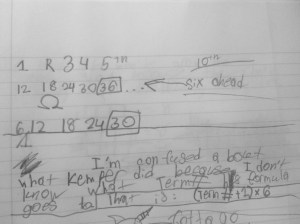 1 R 3 4 5th 10th
12 18 24 30 36 ... six ahead
6, 12 18 24 30
I'm confused about
what Kemper did because I don't
know what Term# formula
goes to That is: (Term#+2)×6